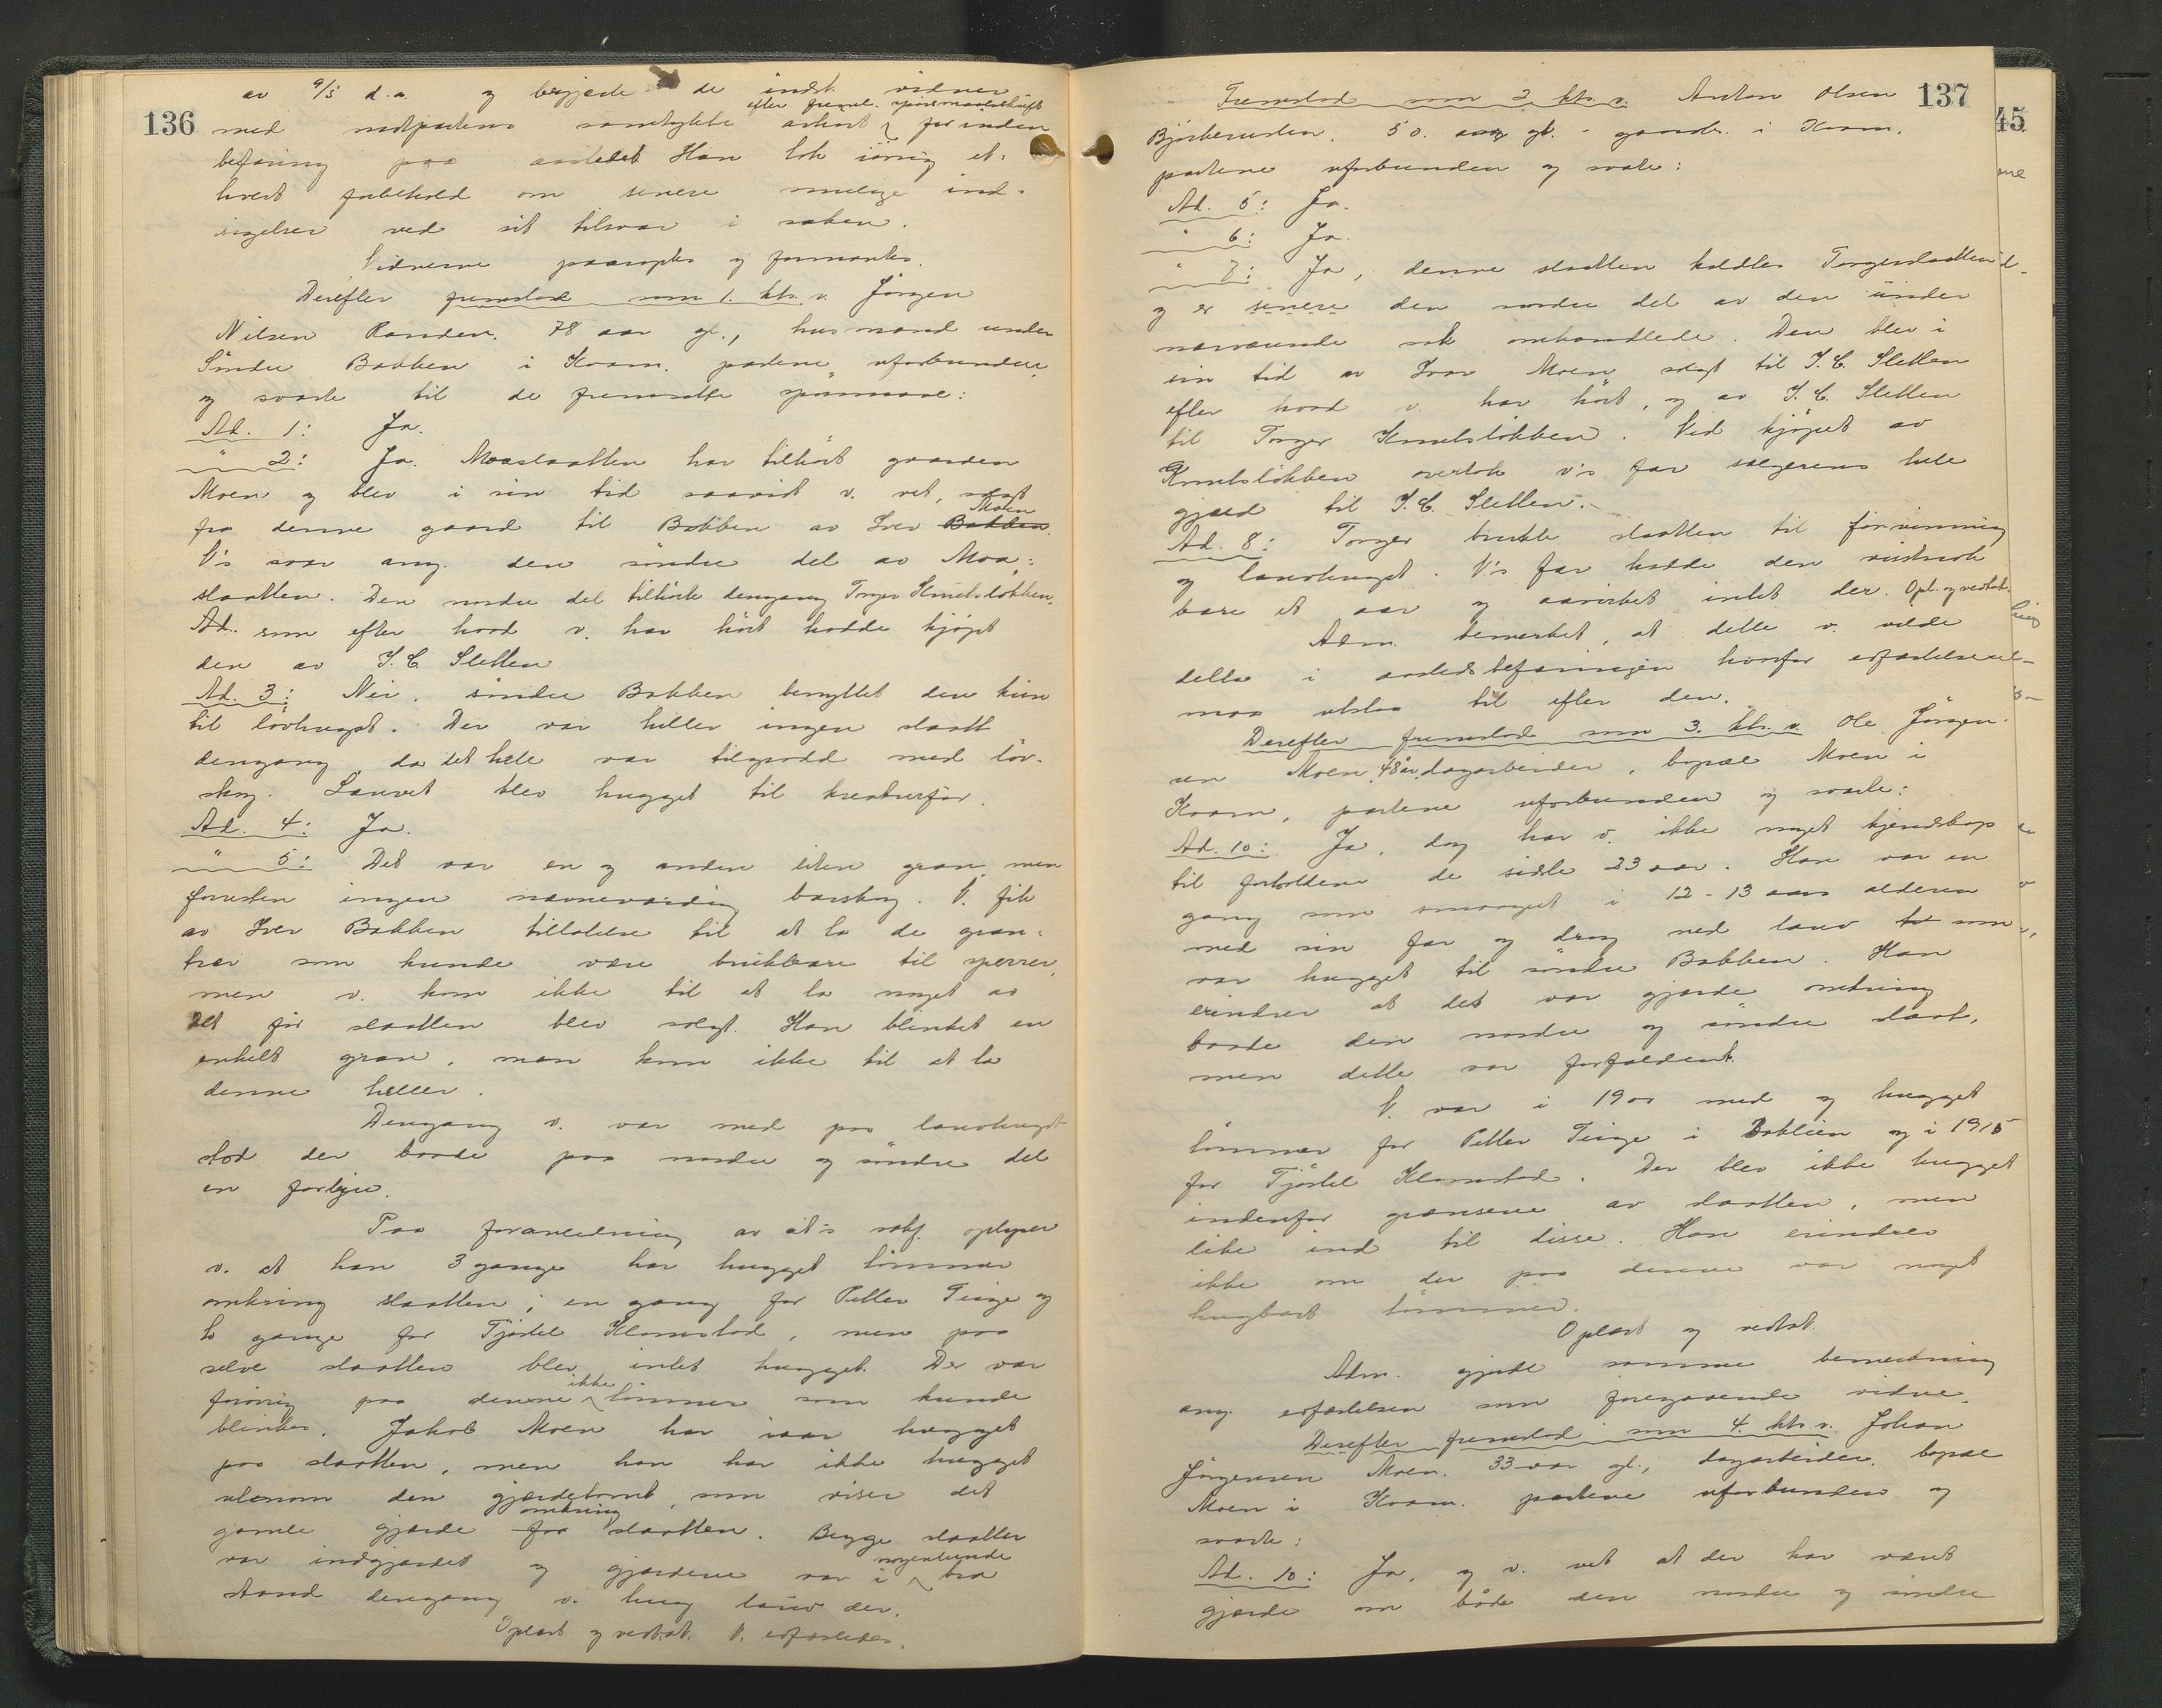 136
av 9/5 d.a. og begjærte de indst. vidner
med motpartens samtykke avhørt efter freml. spørsmaalsskrift før inden
befaring paa aastedet Han tok iøvrig et-
hvert forbehold om senere mulige ind-
sigelser ved sit tilsvar i saken.
Vidnerne paaroptes og formantes.
Derefter fremstod som 1. kts. v. Jørgen
Nilsen Randen. 78 aar gl., husmand under
Søndre Bakken i Kvam. partene uforbunden
og svarte til de fremsatte spørsmaal:
Ad. 1: Ja.
" 2: Ja. Moaslaatten har tilhørt gaarden
Moen og blev i sin tid saavidt v. vet, solgt
fra denne gaard til Bakken av Iver Bakken Moen
V's svar ang. den søndre del av Moa-
slaatten. Den nordre del tilhørte dengang Torger Knutsløkken,
Ad. som efter hvad v. har hørt hadde kjøpt
den av I. C. Sletten
Ad. 3: Nei. søndre Bakken benyttet den kun
til løvhugst. Der var heller ingen slaatt
dengang da det hele var tilgrodd med løv-
skog. Lauvet blev hugget til kreaturfor.
Ad. 4: Ja.
" 5: Det var en og anden liten gran, men
forresten ingen nævneværdig barskog. V. fik
av Iver Bakken tillatelse til at ta de gran-
trær som kunde være brukbare til sperrer,
men v. kom ikke til at ta noget av
det før slaatten blev solgt. Han blinket en
enkelt gran, men kom ikke til at ta
denne heller.
Dengang v. var med paa lauvhugst
stod der baade paa nordre og søndre del
en forløe.
Paa foranledning av cit's sakf. oplyser
v. at han 3 gange har hugget tømmer
omkring slaatten; en gang for Petter Teige og
to gange for Tjøstel Klomstad, men paa
selve slaatten blev intet hugget. Der var
forøvrig paa denne ikke tømmer som kunde
blinkes. Jakob Moen har iaar hugget
paa slaatten, men han har ikke hugget
utenom den gjærdetomt, som viser det
gamle gjærde for omkring slaatten. Begge slaatter
var indgjærdet og gjærdene var i nogenlunde bra
stand dengang v. hug lauv der.
Oplæst og vedtat. V. erfæstedes.
137
Fremstod som 2 kts. v. Anton Olsen
Bjørkerusten. 50. aar gl. - gaardb. i Kvam.
partene uforbunden og svarte:
Ad. 5: Ja.
" 6: Ja.
" 7: Ja, denne slaatten kaldtes Torgerslaatten
og er senere den nordre del av den under
nærværende sak omhandlede. Den blev i
sin tid av Ivar Moen solgt til I. C. Sletten
efter hvad v. har hørt, og av I. C. Sletten
til Torger Knutsløkken. Ved kjøpet av
Knutsløkken overtok v's far sælgerens hele
gjæld til I. C. Sletten.
Ad. 8: Torger brukte slaatten til forvinning
og lauvhugst. V's far hadde den
bare et aar og avirket intet der. Opl. og vedtat.
Adm. bemerket, at dette v. vilde
delta i aastedsbefaringen hvorfor erfæstelsen
maa utstaa til efter den.
Derefter fremstod som 3. kts. v. Ole Jørgen-
sen Moen, 48 år, dagarbeider, bopæl Moen i
Kvam, partene uforbunden og svarte:
Ad. 10: Ja, dog har v. ikke noget kjendskap
til forholdene de sidste 23 aar. Han var en
gang som smaagut i 12-13 aars alderen
med sin far og drog ned lauv som
var hugget til søndre Bakken. Han
erindrer at det var gjærde omkring
baade den nordre og søndre slaat,
men dette var forfaldent.
V. var i 1900 med og hugget
tømmer for Petter Teige i Baklien og i 1915
for Tjøstel Klomstad. Der blev ikke hugget
indenfor grænsene av slaatten, men
like ind til disse. Han erindrer
ikke om der paa denne var noget
hugbart tømmer.
Oplæst og vedtat.
Adm. gjorde samme bemerkning
ang. erfæstelsen som foregaaende vidne.
Derefter fremstod som 4. kts. v. Johan
Jørgensen Moen. 33 aar gl., dagarbeider, bopæl
Moen i Kvam. partene uforbunden og
svarte:
Ad. 10: Ja, og v. vet at der har været
gjærde om både den nordre og søndre
45